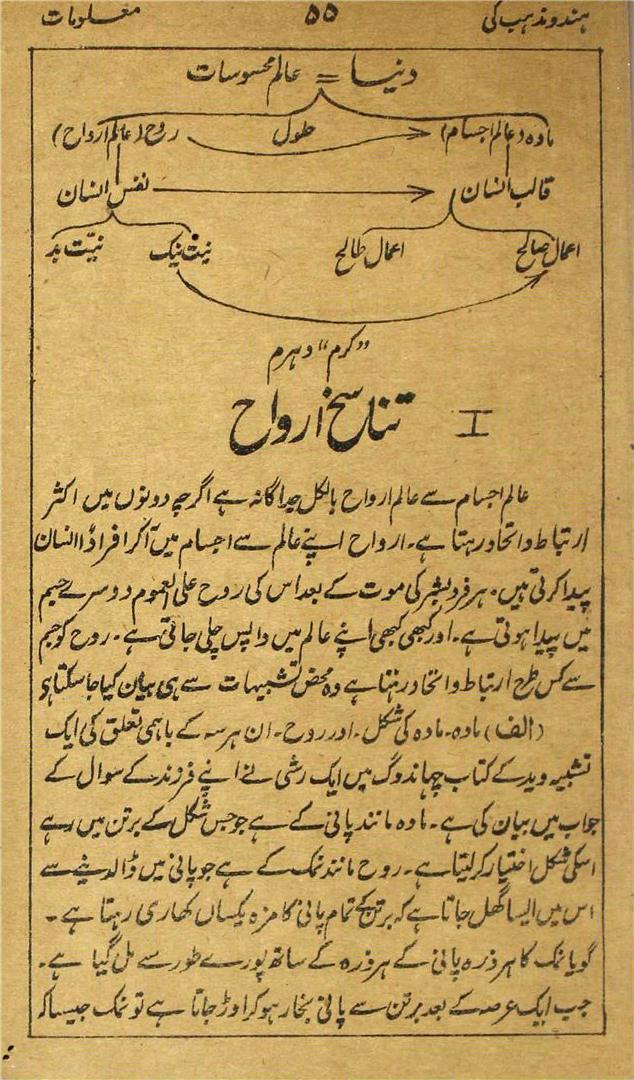 ہندو مذہب کی ۵۵ معلومات
دنیا = عالم محسوسات
مادہ (عالم اجسام) حلول روح (عالم ارواح)
قالب انسان نفس انسان
اعمال صالح اعمال طالح نیت نیک نیّت بد
”کرم“ دہرم
I تناسخ ارواح
عالم اجسام سے عالم ارواح بالکل جداگانہ ہے اگرچہ دونوں میں اکثر
ارتباط و اتحاد رہتا ہے۔ ارواح اپنے عالم سے اجسام میں آکر افراد انسان
پیدا کرتی ہیں۔ ہر فرد بشر کی موت کے بعد اس کی روح علی العموم دوسرے جسم
میں پیدا ہوتی ہے۔ اور کبھی کبھی اپنے عالم میں واپس چلی جاتی ہے۔ روح کو جسم
سے کس طرح ارتباط و اتحاد رہتا ہے وہ محض تشبیہات سے ہی بیان کیا جا سکتا ہے
(الف) مادہ۔ مادہ کی شکل۔ اور روح۔ ان ہر سہ کے باہمی تعلق کی ایک
تشبیہ وید کے کتاب چہاندوگ میں ایک رشی نے اپنے فرزند کے سوال کے
جواب میں بیان کی ہے۔ مادہ مانند پانی کے ہے جو جس شکل کے برتن میں رہے
اسکی شکل اختیار کر لیتا ہے۔ روح مانند نمک کے ہے جو پانی میں ڈالدینے سے
اس میں ایسا گھل جاتا ہے کہ برتن کے تمام پانی کا مزہ یکساں کھاری رہتا ہے۔
گویا نمک کا ہر ذرہ پانی کے ہر ذرہ کے ساتھ پورے طور سے مل گیا ہے۔
جب ایک عرصہ کے بعد برتن سے پانی بخار ہو کر اوڑ جاتا ہے تو نمک جیسا کہ